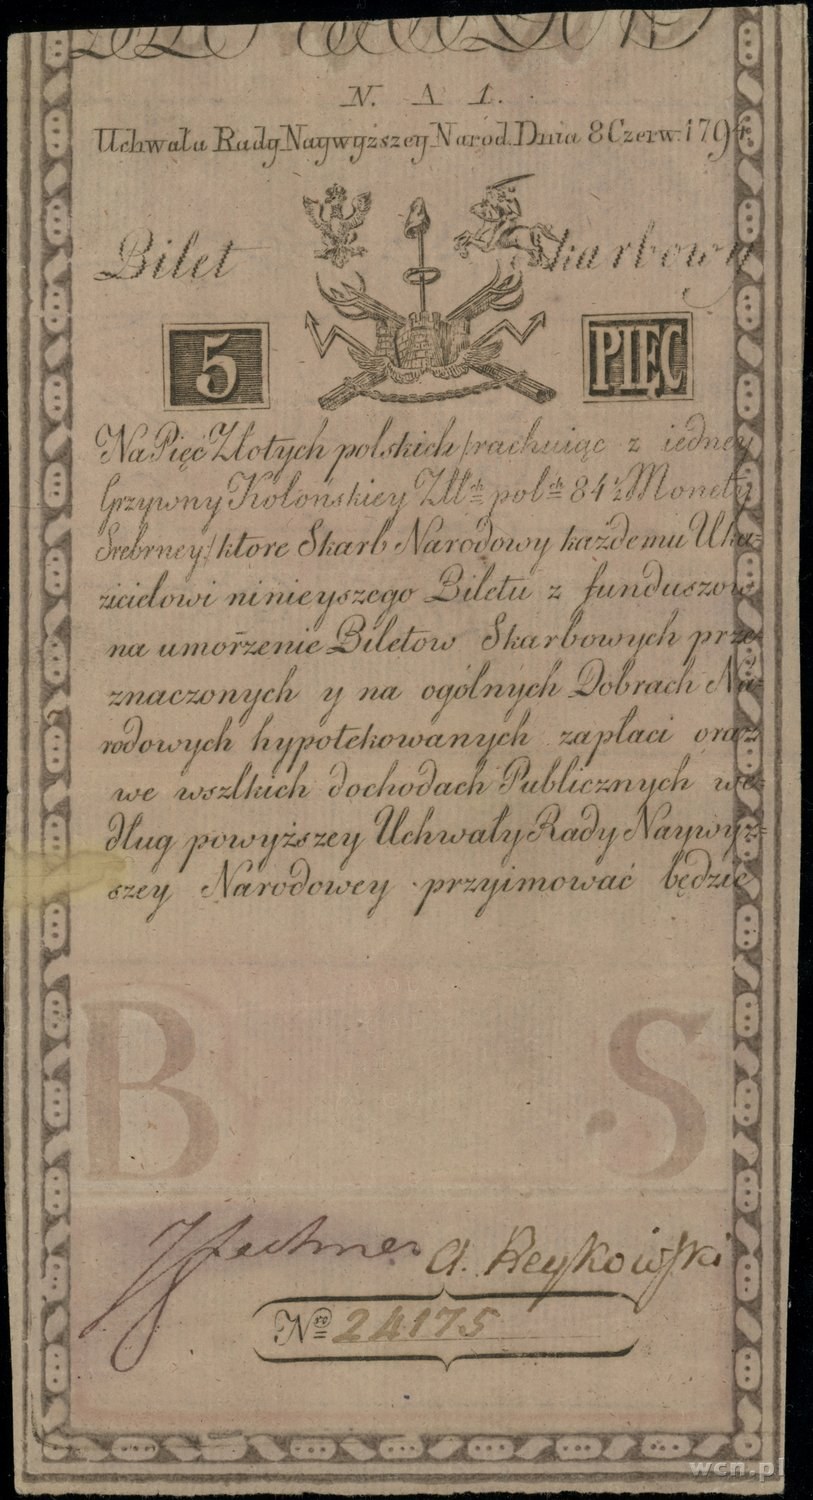 N. A 1.
Uchwała Rady Naywyższey Narod. Dnia 8 Czerw. 1794.
Bilet Skarbowy
5 PIĘC
Na Pięć Złotych polskich /rachuiąc z iedney
Grzywny Kolońskiey Zll: pol: 84½ Monety
Srebrney/ ktore Skarb Narodowy każdemu Uka=
zicielowi ninieyszego Biletu z funduszow
na umorzenie Biletow Skarbowych prze=
znaczonych y na ogólnych Dobrach Na=
rodowych hypotekowanych zapłaci oraz
we wszlkich dochodach Publicznych we=
dług powyższey Uchwały Rady Naywyż=
szey Narodowey przyimować będzie
B S
A. Reykowski
Nro 24175
wcn.pl